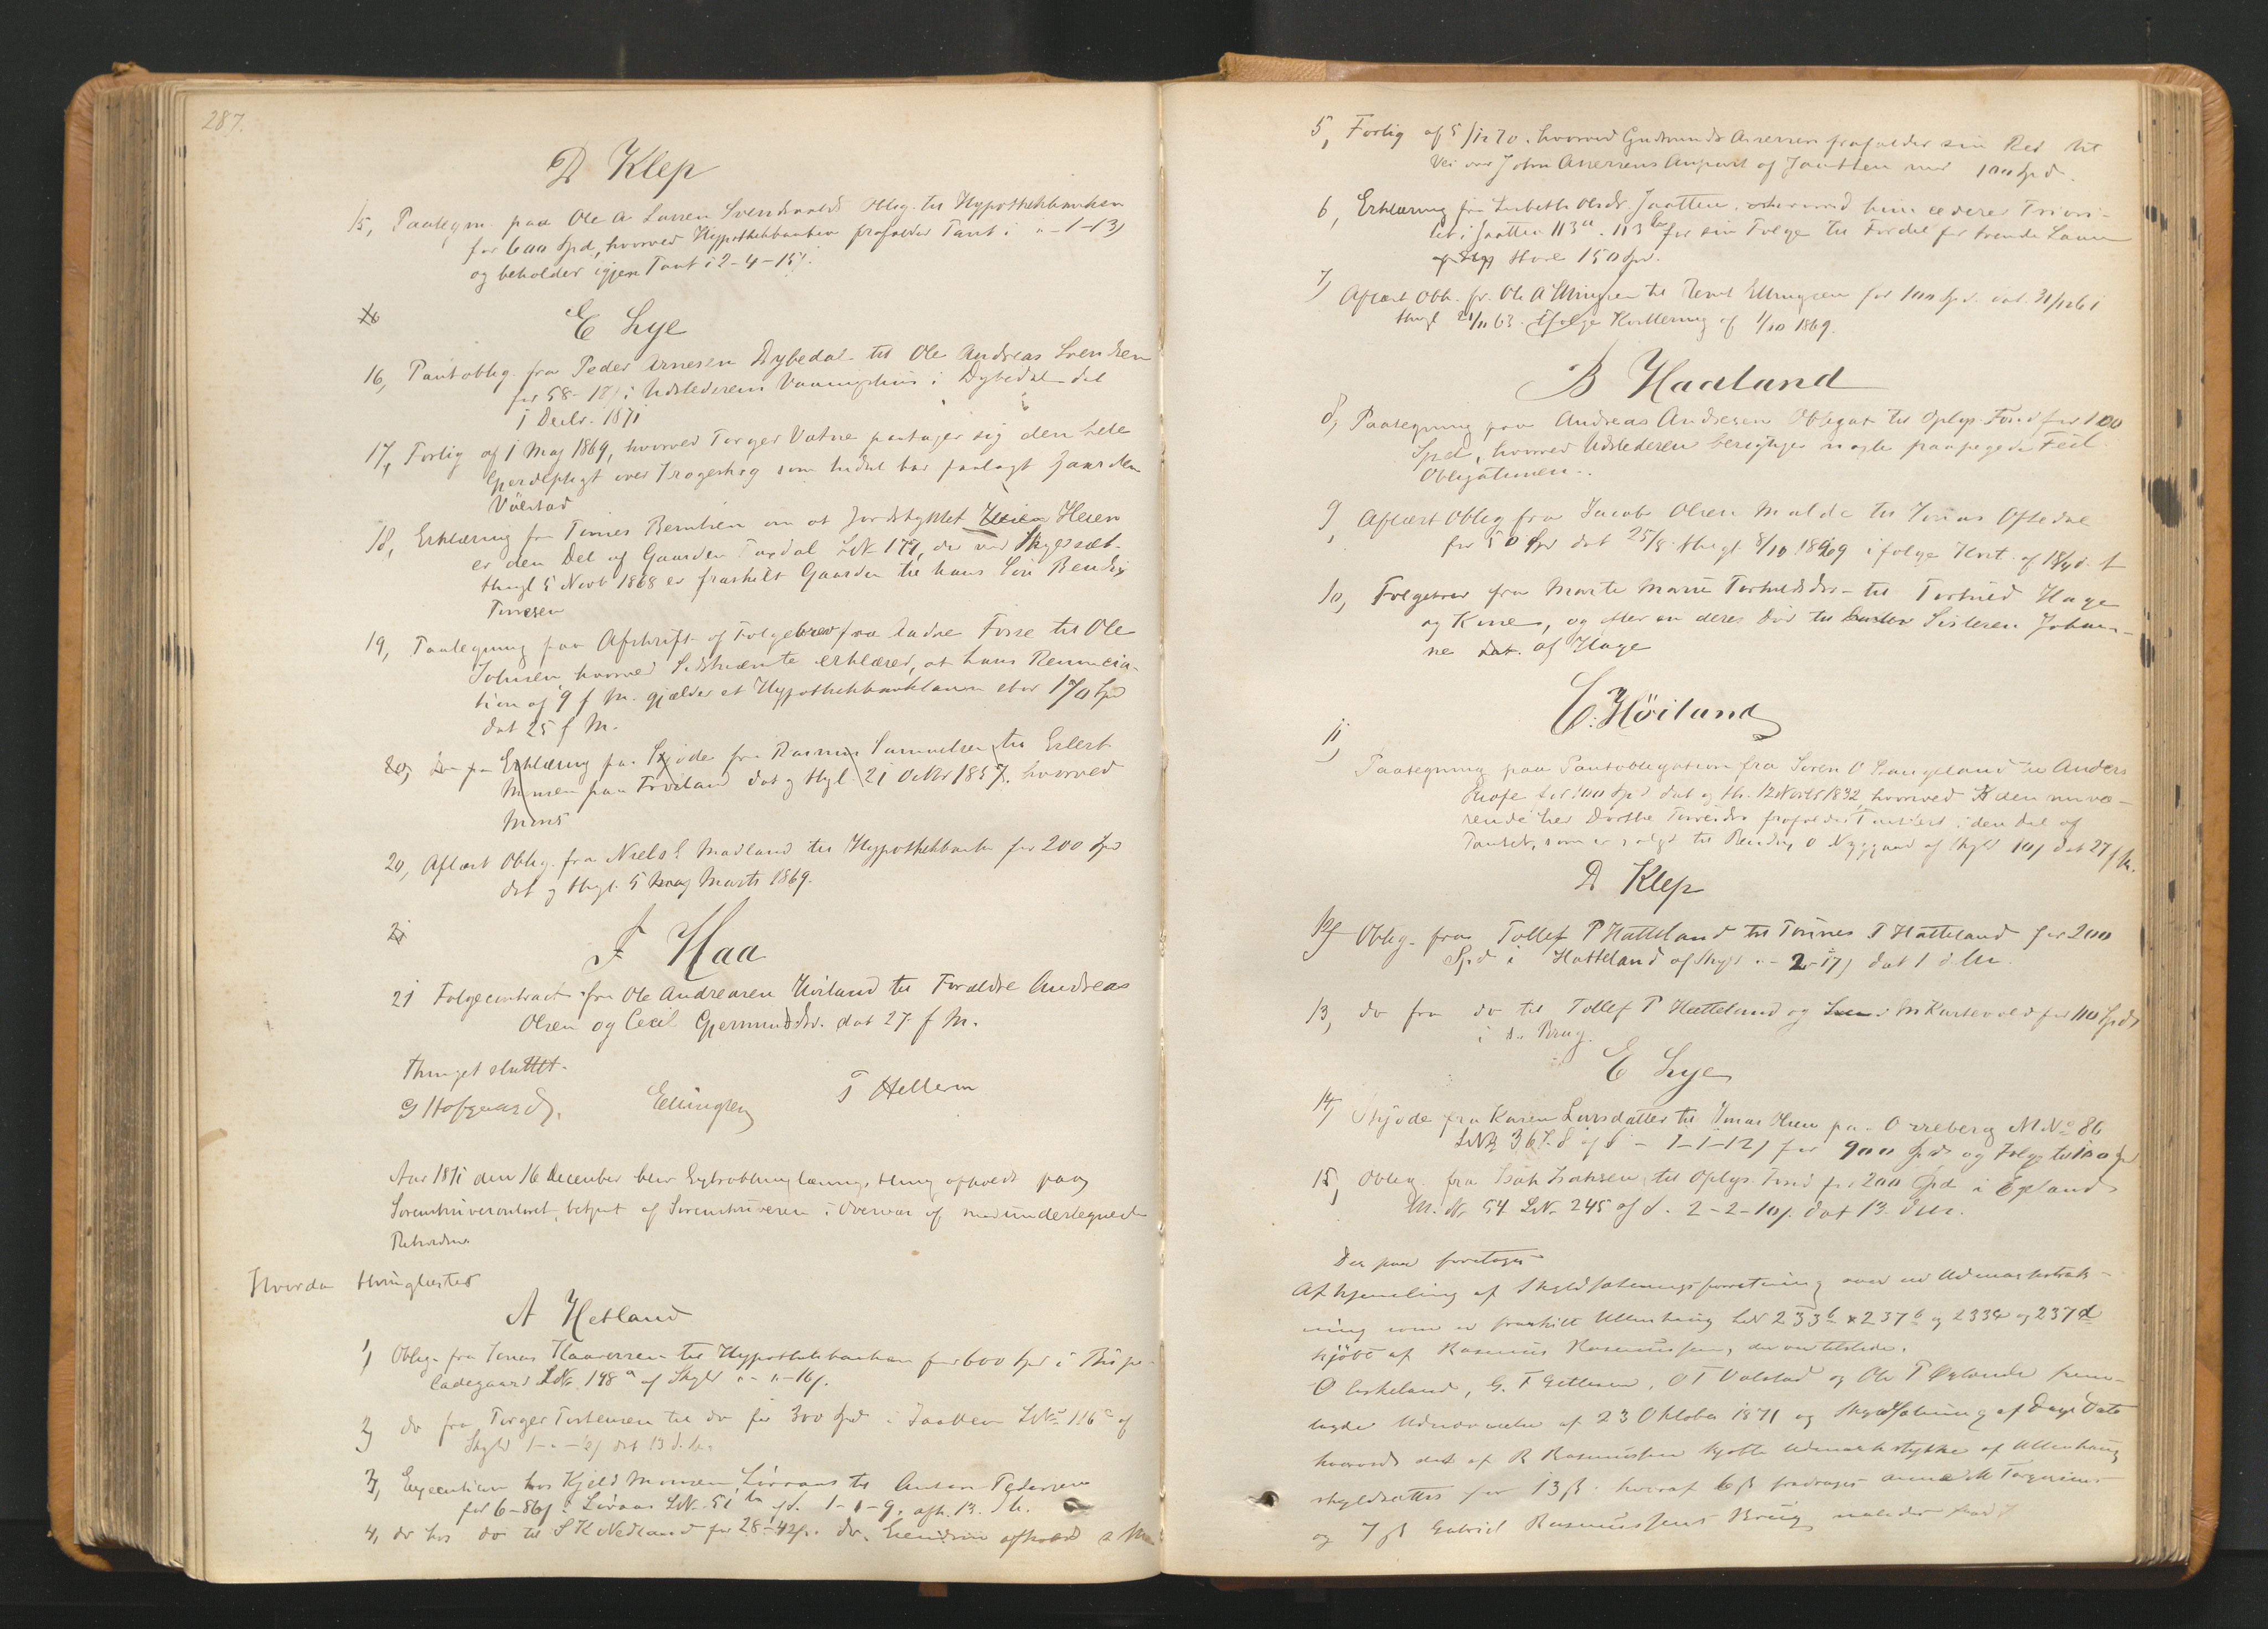 287.
D Klep
15, Paategn. paa Ole A Larsen Svendsvolds Oblig. til Hypothekbanken
for 600 Spd, hvorved Hypothekbanken frafalder Pant i " - 1 - 13)
og beholder igjen Pant i 2-4-15).
16
E Lye
16, Pantoblig. fra Peder Arnesen Dybedal til Ole Andreas Svendsen
for 58 - 18) i Udstederens Vaaningshus i Dybedal dat
1 Decbr. 1871
17, Forlig af 1 Maj 1869, hvorved Torger Vatne paatager sig den hele
Gjerdepligt over Trogerhag som hidtil har paalagt Gaarden
18, Erklæring fra Tønnes Berntsen om at Jordstykket Heien
er den Del af Gaarden Tasdal LN 177, der ved Skjøde
thingl 5 Novb 1868 er fraskilt Gaarden til hans Søn Bendix
Tønnesen
19, Paategning paa Afskrift af Folgebrev fra Andre Fosse til Ole
Johnsen, hvorved Sidstnævnte erklærer, at hans Renuncia-
tion af 9 f M. gjælder et Hypothekbanklaan stor 170 Spd
dat 25 f M.
20, Erklæring paa Skjøde fra Rasmus Samuelsen til Eilert
Monsen paa Frøiland dat og thgl. 21 Octbr 1857. hvorved
Mons
20, Aflæst Oblig. fra Niels E Madland til Hypothekbanken for 200 Spd
dat og thgl. 5 Marts 1869.
21
F Haa
21 Folgecontract fra Ole Andreasen Høiland til Forældre Andreas
Olsen og Cecil Gjermundsdr. dat 27 f M.
Thinget sluttet.
G Hofgaard. Ellingsen T Hellesen
Aar 1871 den 16 December blev Extrathinglæsnings thing afholdt paa
Sorenskriverontoret, betjent af Sorenskriveren i Overvær af medundertegnede
Retsvidner
Hvorda thinglæstes
A Hetland
1) Oblig. fra Jonas Kaaresen til Hypothekbanken for 600 Spd i Bispe-
ladegaard LN. 148 a af Skyld " - " - 16).
2) do fra Torger Torstensen til do for 300 Spd i Jaatten LNo 116 c af
Skyld 1 - " - dat 13 d. M.
3, Execution hos Kjeld Monsen Liøraas til Anton Pedersen
for 6-86) i Liøraas LN. 51 af d. 1-1-9, afh. 13. d M.
4, do hos do til S K Nedland for 28-42). do. Eiendom afholdt s. M
5, Forlig af 5/12 70. hvorved Gudmund Assersen frafalder sin Ret til
Vei over John Assersens Anpart af Jaatten mod 100 Spd.
6, Erklæring fra Lisbeth Olsdr. Jaatten, hvorved hun cederer Priori-
tet i Jaatten 113 a. 113 b for sin Folge til Fordel for trende Laan
stort 150 Spd.
7) Aflæst Obl. fr. Ole A Ellingsen til Bernt Ellingsen for 100 Spd. dat. 31/12 61
thingl 21/11 63. ifølge Kvittering af 1/10 1869.
B Haaland
8, Paategning paa Andreas Andresens Obligat. til Oplys. Fond for 100
Spd, hvorved Udstederen berigtiger nogle paapegede Feil
Obligationen.
9, Aflæst Oblig fra Jacob Olsen Malde til Jonas Oftedal
for 50 Spd dat 25/8. thgl. 8/10 1869 ifølge Kvit. af
10, Folgebrev fra Marte Marie Torkildsdr. til Torkild Hage
og Kone, og efter en deres Død til Søsteren Johan-
ne af Hage
C. Höiland
11, Paategning paa Pantobligation fra Søren O Stangeland til Anders
for 100 Spd dat og th. 12 Novbr 1832, hvorved den nuvæ-
rende Eier Dorthe frafalder Panteret i den Del af
Pantet, som er solgt til O Nygaard af Skyld 10) dat 27 f M.
D Klep
12) Oblig. fra Tollef P Hatteland til Tønnes T Hatteland for 200
Spd i Hatteland af Skyld " - 2 - 17) dat 1 d M.
13, do fra do til Tollef P Hatteland og M Kartevold for 110 Spd
i d. Brug.
E Lye
14) Skjøde fra Karen Larsdatter til Jonas Olsen paa Orreberg MNo 86
LN 367. 8 af d - 1-1-12) for 900 Spd og Folge til 100 Spd
15, Oblig. fra Isak Isaksen til Oplys. Fond for 200 Spd i Egeland
M. No 54 LN. 245 af d. 2-2-10). dat 13 d M.
Der paa foretoges
Afhjemling af Skyldsætningsforretning over en Udmarkstræk-
ning som er fraskilt Ullenhaug LN 233 b & 237 b og 233 c og 237 d
kjøbt af Rasmus Rasmussen, der var tilstede.
O Eskeland, G. T Gilleson, O T Valstad og Ole T Øglænde frem-
lagde Udnævnelse af 23 Oktober 1871 og Skyldsætning af Dags Dato
hvorved det af R Rasmussen kjøbte Udmarkstykke af Ullenhaug
skyldsattes for 13 ß. hvoraf 6 ß fradrages Anna M Torgersens
og 7 ß Gabriel Rasmussens Brug